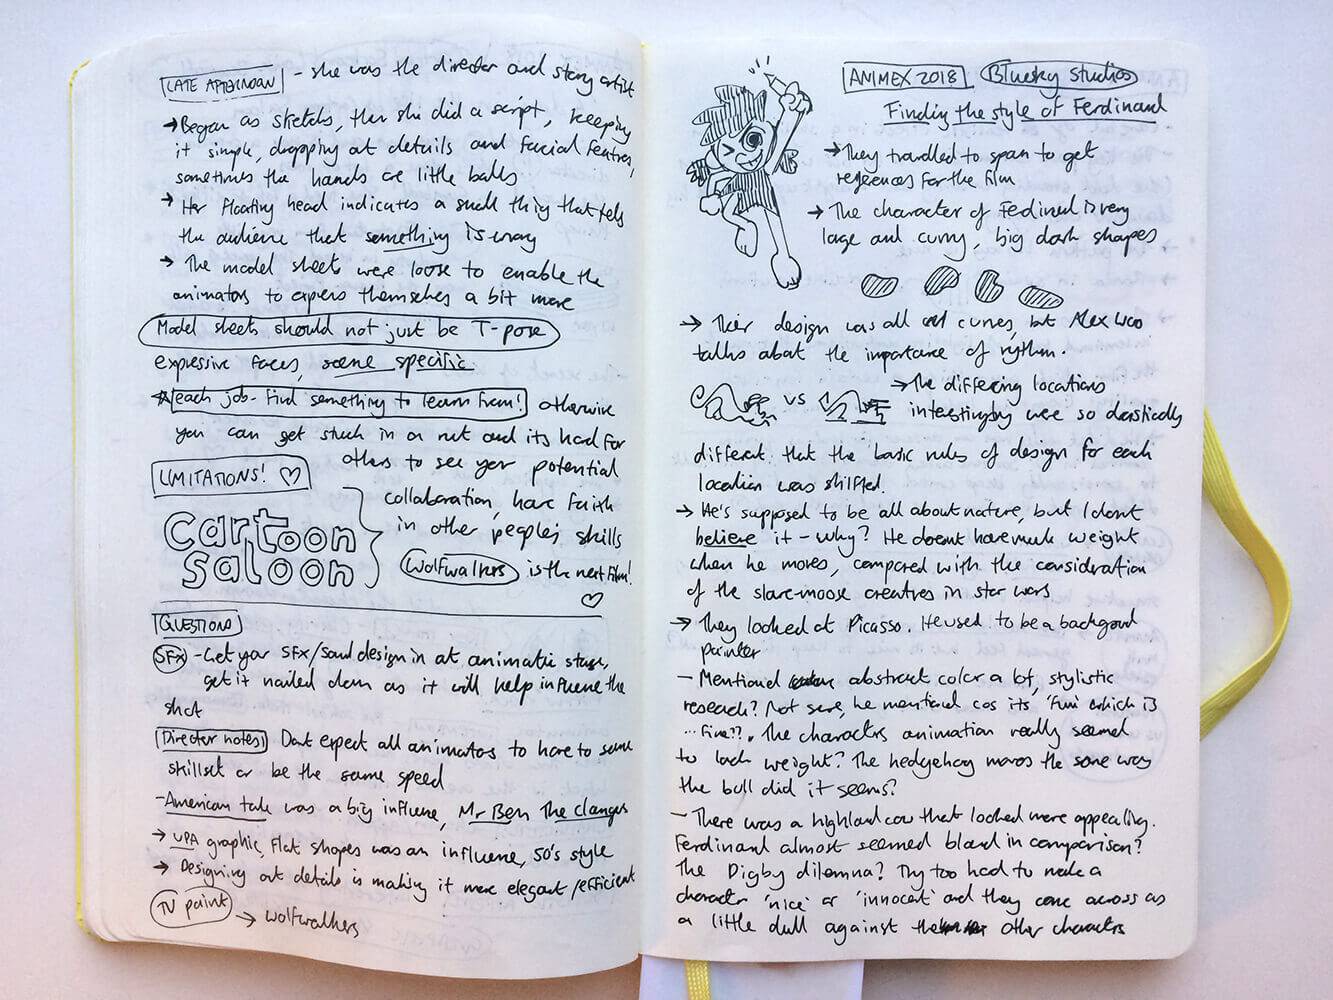 LATE AFTERNOON - she was the director and story artist
→ Began as sketches, then she did a script, keeping
it simple, dropping out details and facial features,
sometimes the hands are little balls
→ Her floating head indicates a small thing that tells
the audience that something is wrong
→ The model sheets were loose to enable the
animators to express themselves a bit more
Model sheets should not just be T-pose
expressive faces, scene specific
each job - find something to learn from! otherwise
you can get stuck in a rut and its hard for
others to see your potential
LIMITATIONS! ♡
cartoon
saloon
collaboration, have faith
in other people's skills
Wolfwalkers is the next film!
♡
QUESTIONS
SFX - Get your SFX/sound design in at animatic stage,
get it nailed down as it will help influence the
shot
Director notes; Dont expect all animators to have to same
skillset or be the same speed
- American tale was a big influence, Mr Ben The clangers
→ UPA graphic, flat shapes was an influence, 50's style
→ Designing out details is making it more elegant/efficient
TV paint → wolfwalkers
ANIMEX 2018 Bluesky studios
Finding the style of Ferdinand
→ They travelled to spain to get
references for the film
→ The character of Ferdinand is very
large and curvy, big dark shapes
→ Their design was all curves, but Alex Woo
talks about the importance of rythm.
vs
→ The differing locations
interestingby were so drastically
different that the basic rules of design for each
location was shifted.
→ He's supposed to be all about nature, but I dont
believe it - why? He doesnt have much weight
when he moves, compared with the consideration
of the slave-moose creatures in star wars
→ They looked at Picasso. He used to be a background
painter
- Mentioned abstract color a lot, stylistic
research? Not sure, he mentioned cos its 'fun' which is
... Fine??. The characters animation really seemed
to lack weight? The hedgehog moves the same way
the bull did it seems?
- There was a highland cow that looked more appealing.
Ferdinand almost seemed bland in comparison?
The Digby dilemna? Try too hard to make a
character 'nice' or 'innocent' and they come across as
a little dull against other characters